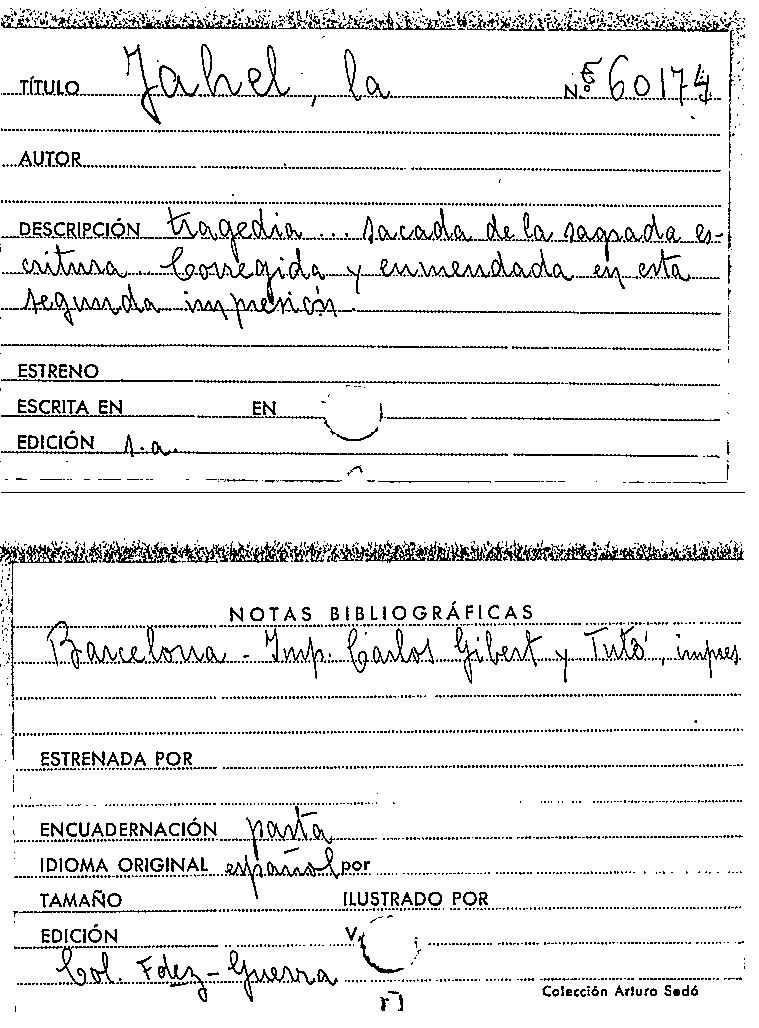 TÍTULO Jahel, la N.º 60174
AUTOR
DESCRIPCIÓN tragedia... sacada de la sagrada es-
critura. Corregida y enmendada en esta
segunda impresión.
ESTRENO
ESCRITA EN EN
EDICIÓN s.a.
NOTAS BIBLIOGRÁFICAS
Barcelona - Imp. Carlos Gibert y Tutó, impres
ESTRENADA POR
ENCUADERNACIÓN pasta
IDIOMA ORIGINAL español por
TAMAÑO ILUSTRADO POR
EDICIÓN V.
Col. Fdez-Guerra
Colección Arturo Sedó